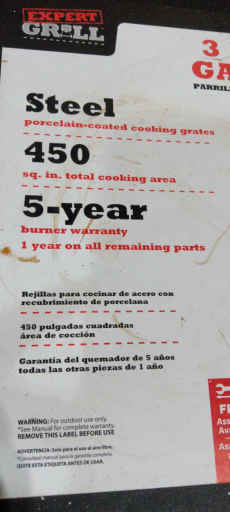 EXPERT
GRILL
3
GA
PARRIL
Steel
porcelain-coated cooking grates
450
sq. in. total cooking area
5-year
burner warranty
1 year on all remaining parts
Rejillas para cocinar de acero con
recubrimiento de porcelana
450 pulgadas cuadradas
área de cocción
Garantía del quemador de 5 años
todas las otras piezas de 1 año
WARNING: For outdoor use only.
*See Manual for complete warranty.
REMOVE THIS LABEL BEFORE USE
ADVERTENCIA: Solo para el uso al aire libre.
*Consulte el manual para la garantía completa.
QUITE ESTA ETIQUETA ANTES DE USAR.
Ass
Au
As